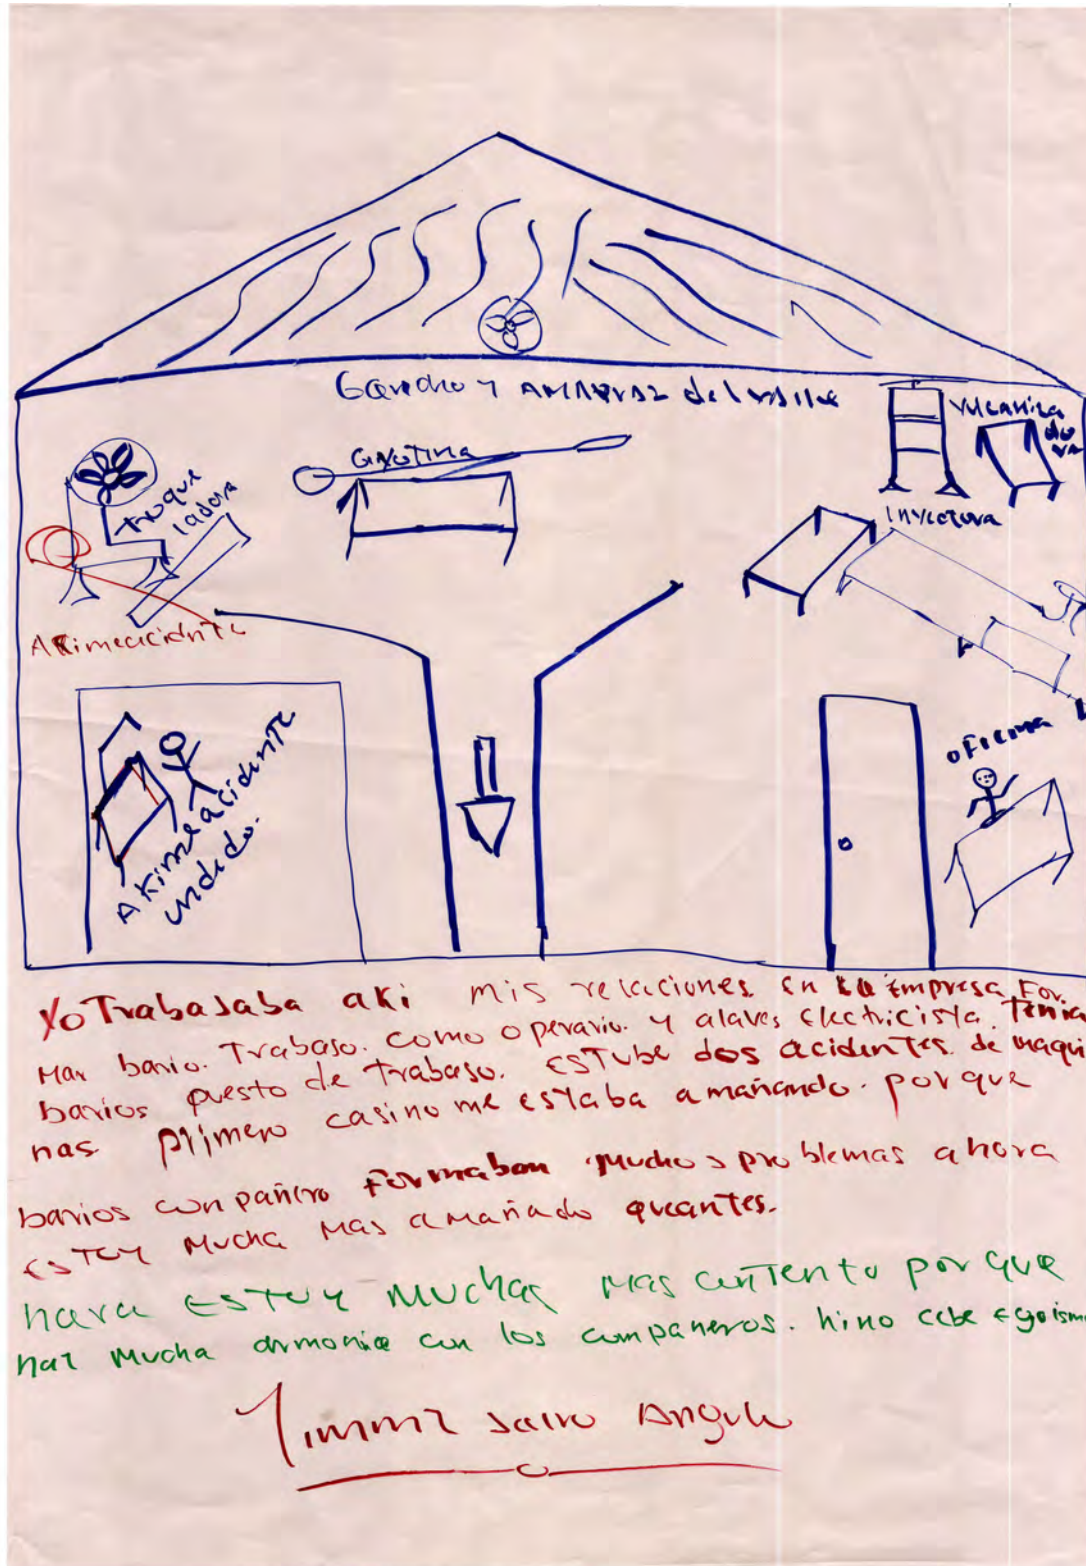 Gancho y AMARRAS del valle
VULCANIZA
do
ra
GiyoTina
troque
ladora
INYECTORA
AKimeacidnTe
oFicina
AKimeacidente
undedo.
Yo Trabasaba aki mis relaciones en la empresa For.
Mar bario. Trabaso. como operario. y alaves Electricista. Tenia
barios puesto de trabaso. ESTube dos acidentes de maqui
nas primero casino me estaba amañando. porque
barios conpañero Formaban Muchos problemas ahora
ESTOY Mucha Mas amañado queantes.
hara ESTOY MUCHAS MAS contento por que
hai Mucha armonia con los companeros. hino cabe egoism
Yimmi Angulo